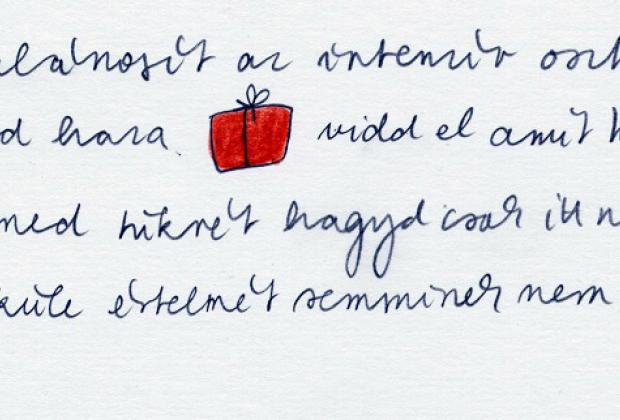 lánosít az intenzív oszt
d haza. vidd el amit h
med tükrét hagyd csak itt n
küle értelmét semminek nem